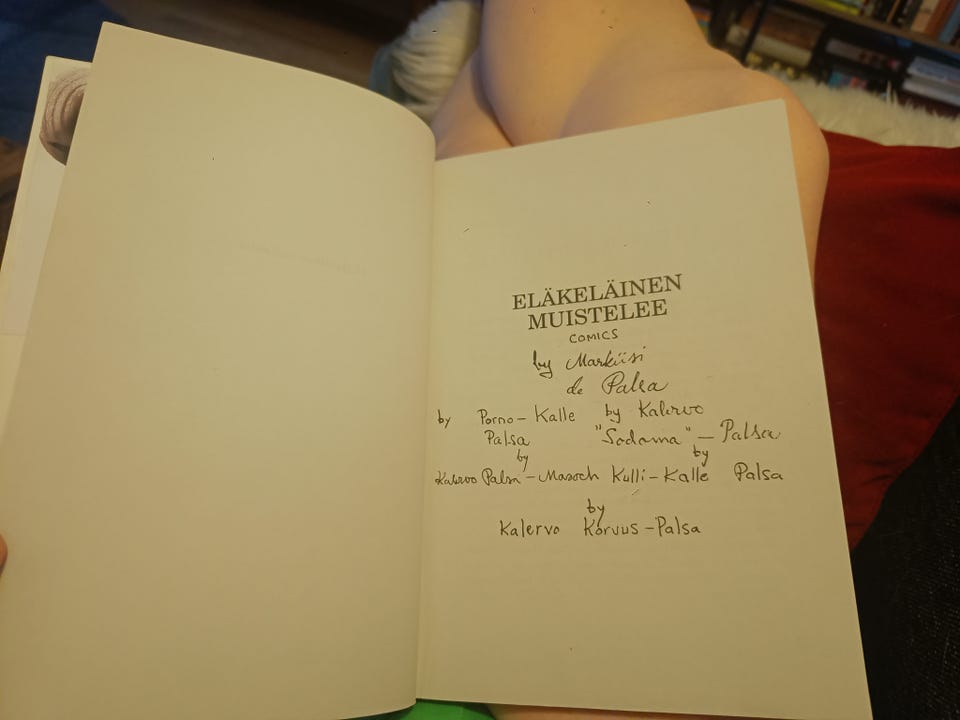 ELÄKELÄINEN
MUISTELEE
COMICS
by Markiisi
de Palsa
by Porno-Kalle by Kalervo
Palsa "Sodoma" - Palsa
by by
Kalervo Palsa-Masoch Kulli-Kalle Palsa
by
Kalervo Korvus-Palsa